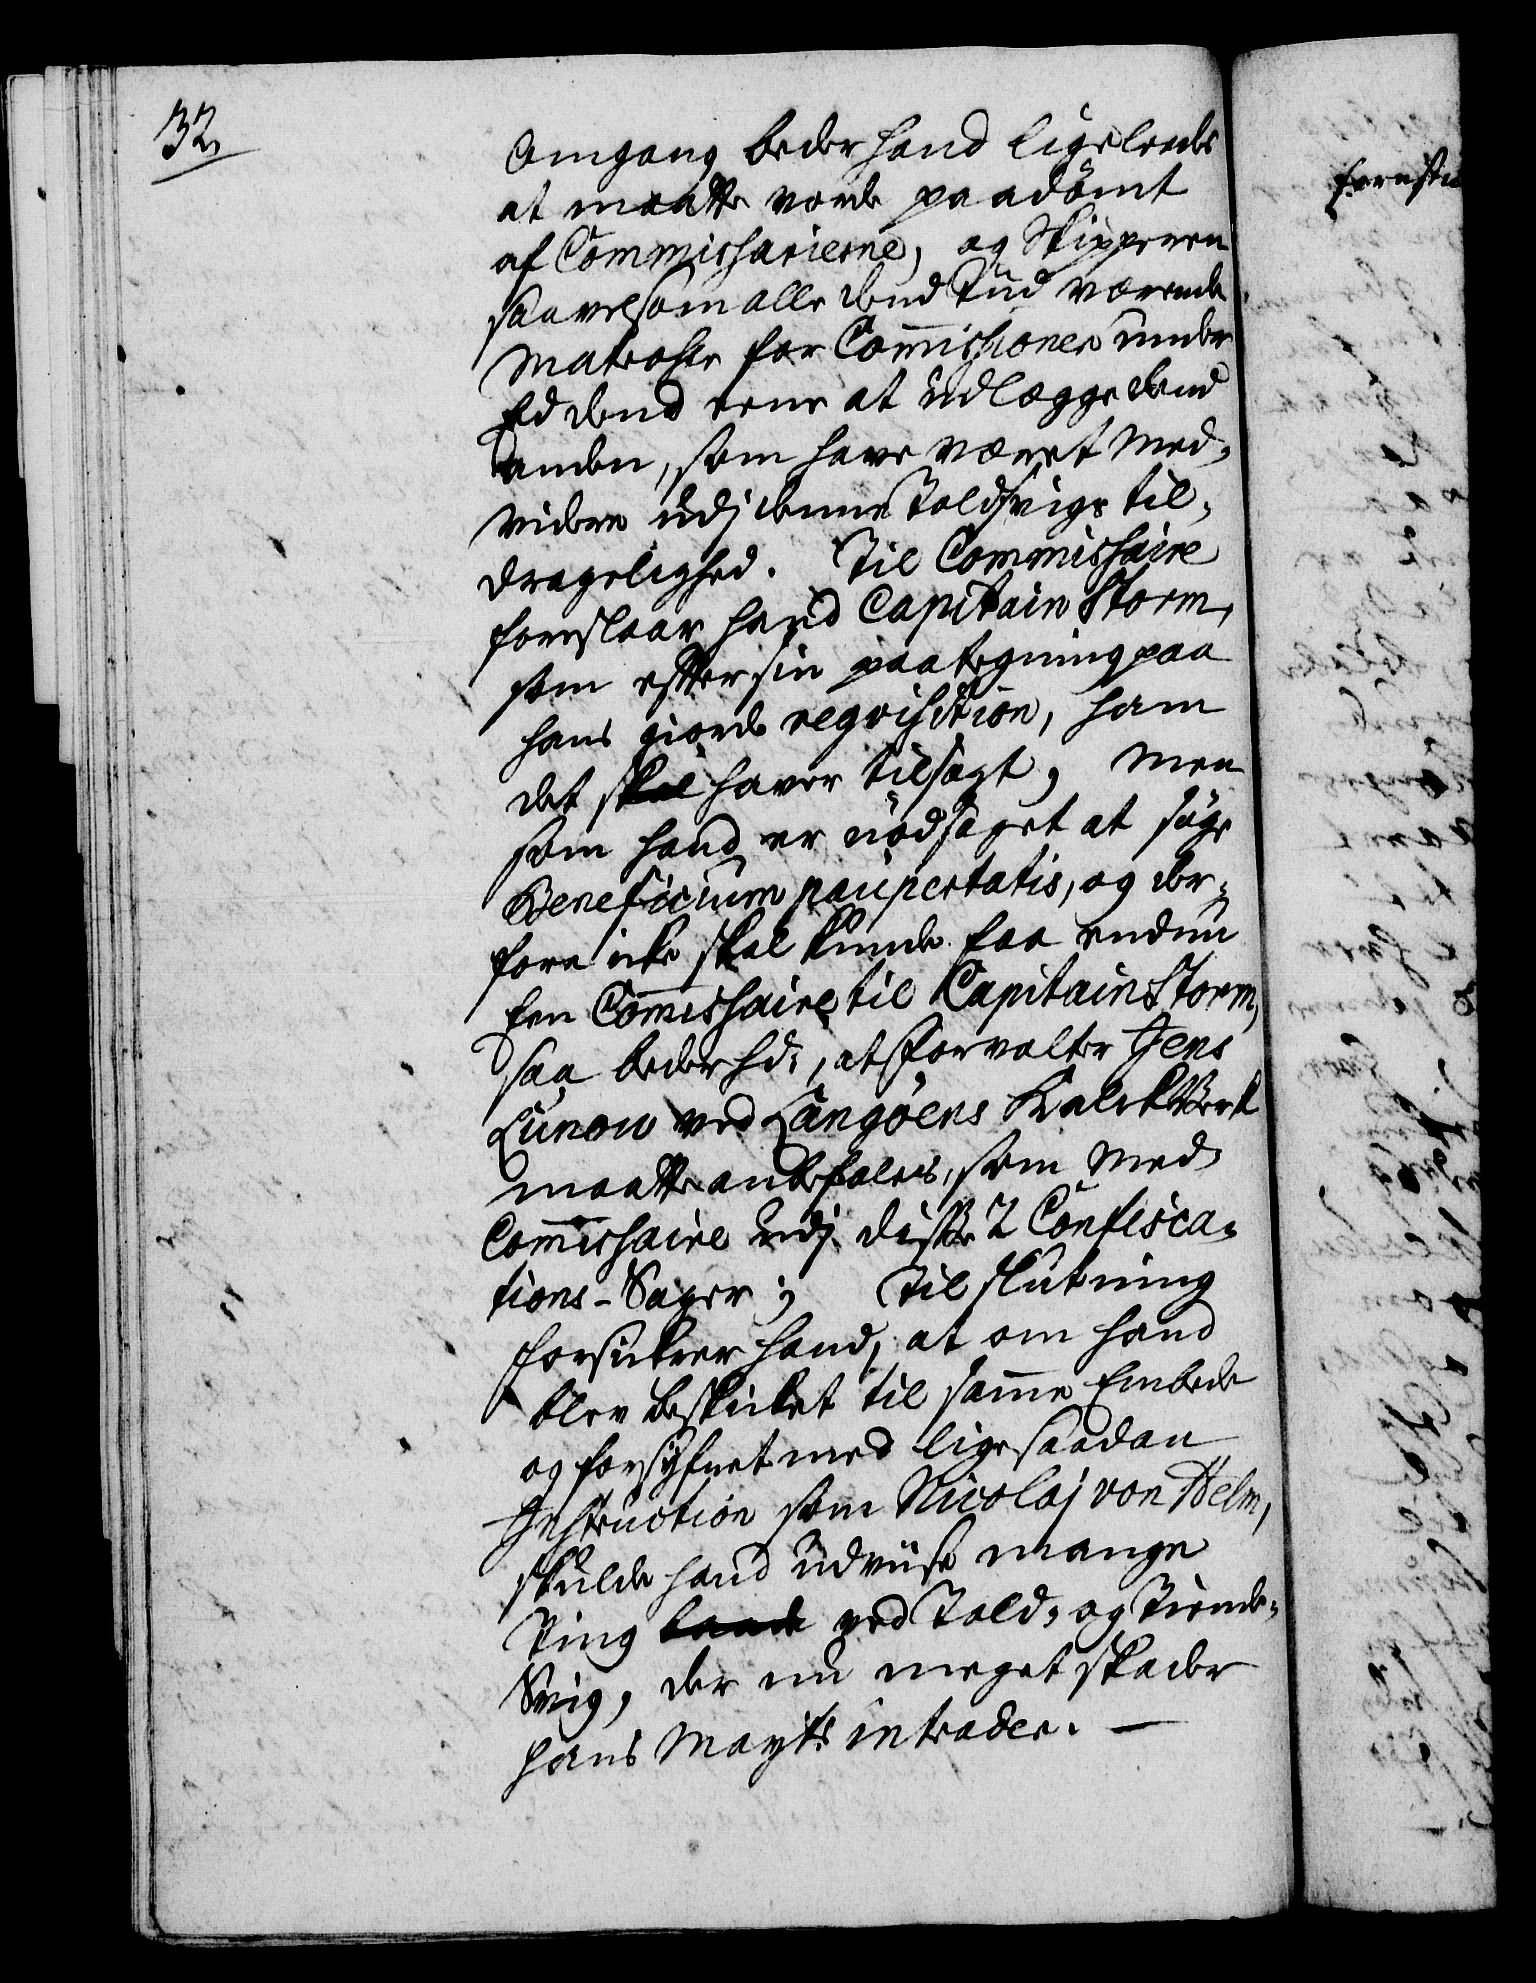 32.
Omgang beder hand ligeleeds
at maatte vorde paadömt
af Commishairerne, og Skipperen
saavelsom alle dend Tiid værende
Matrosse for Commishionen under
Ed dend eene at udlægge dend
anden, som have været Med-
videre udj denne Toldsvigs til-
dragelighed. Til Commishaire
foreslaar hand Capitain Storm,
som efter sin paategning paa
hans giorde reqvisition, ham
det skal haver tilsagt; Men
som hand er nödsaget at söge
Beneficium paupertatis, og der-
fore icke skal kunde faa endnu
Een Commishaire til Capitain Storm,
saa beder hd:, at Forvalter Jens
Lunow ved Langöens Kalckverk
maatte anbefales, som Med-
Commishaire udj disse 2 Confisca-
tions-Sager; Til slutning
forsickrer hand, at om hand
blev beskicket til samme Embede
og forsyfnet med lige saadan
Instruction som Nicolaj von Helm,
skulde hand udviise mange
Ting baade ved Told- og Tiende-
Svig, der nu meget skader
hans Mayts intrader. —